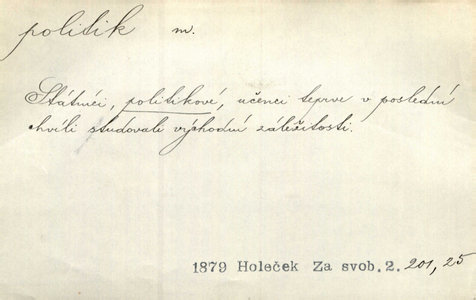 politik m.
Státníci, politikové, učenci teprve v poslední
chvíli studovali východní záležitosti.
1879 Holeček Za svob. 2. 201, 25